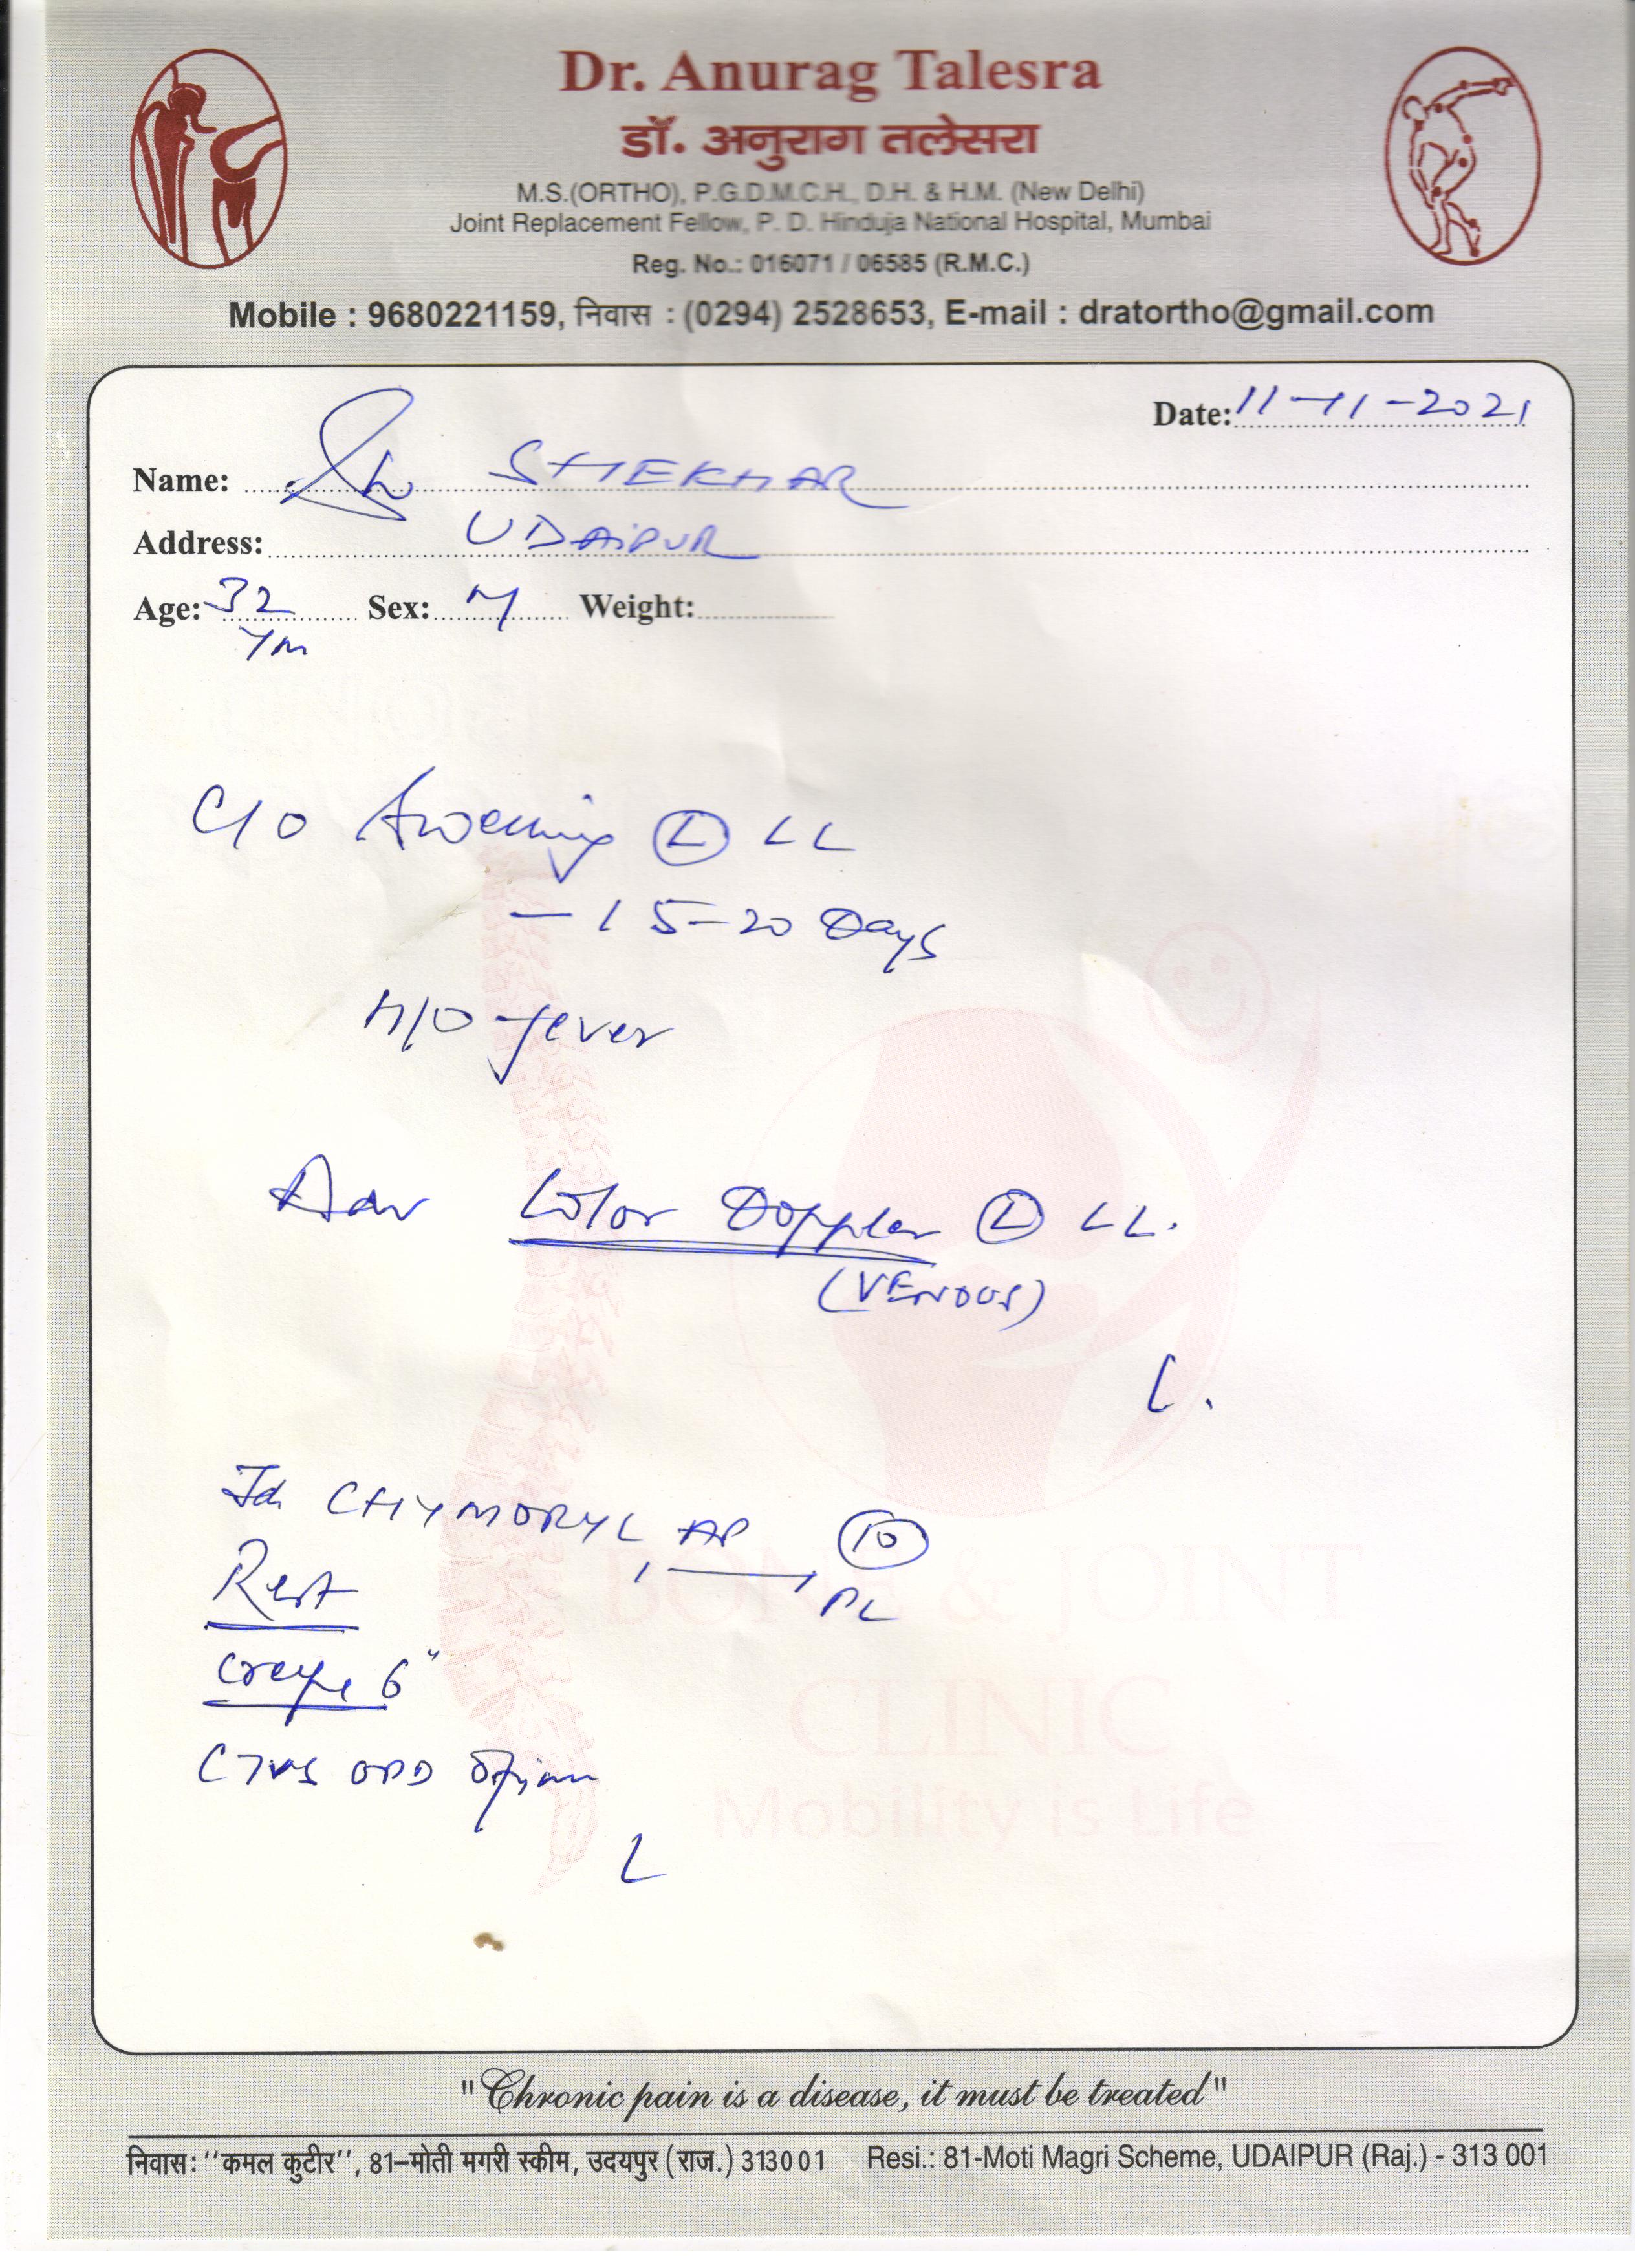 Dr. Anurag Talesra
डॉ. अनुराग तलेसरा
M.S.(ORTHO), P.G.D.M.C.H., D.H. & H.M. (New Delhi)
Joint Replacement Fellow, P. D. Hinduja National Hospital, Mumbai
Reg. No.: 016071 / 06585 (R.M.C.)
Mobile : 9680221159, निवास : (0294) 2528653, E-mail : dratortho@gmail.com
Date: 11-11-2021
Name: SHEKHAR
Address: UDAIPUR
Age: 32 Sex: M Weight:
C/O Swelling (L) LL
- 15-20 Days
H/O fever
Adv Color Doppler (L) LL.
(VENOUS)
CHYMORAL AP (10)
1 — 1
Rest
Crepe 6"
CTVS OPD Opinion
BONE & JOINT
CLINIC
Mobility is Life
"Chronic pain is a disease, it must be treated"
निवास: ‘‘कमल कुटीर’’, 81–मोती मगरी स्कीम, उदयपुर (राज.) 313001 Resi.: 81-Moti Magri Scheme, UDAIPUR (Raj.) - 313 001